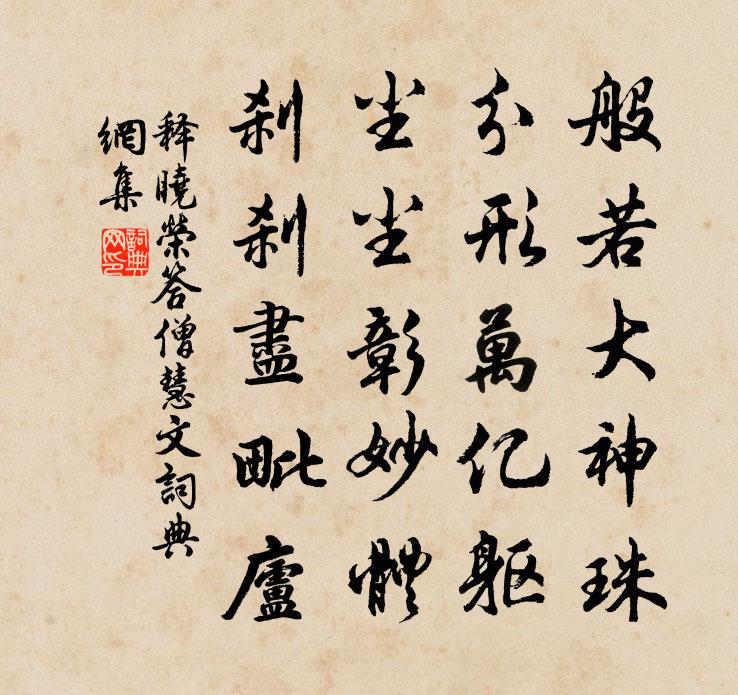 般若大神珠
分形萬亿軀
尘尘彰妙體
刹刹盡毗廬
释曉榮答僧慧文詞典
網集
詞典
网印